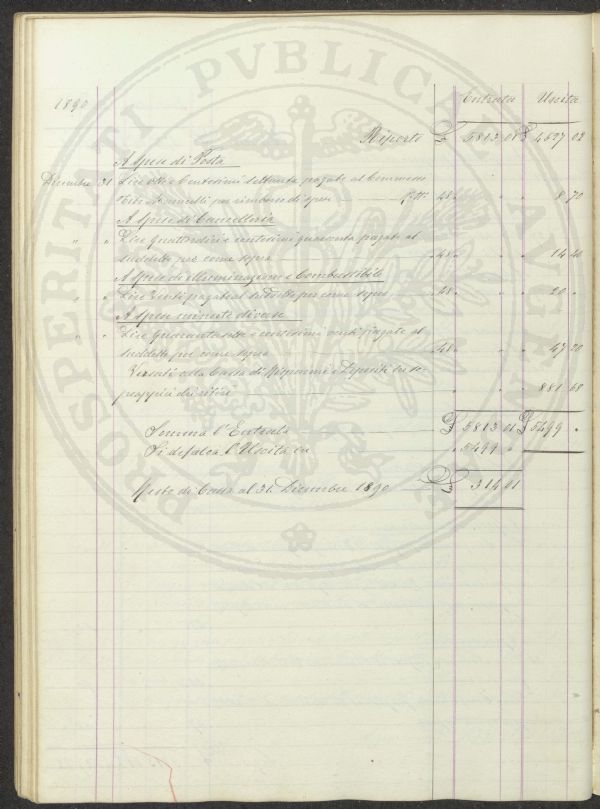 PROSPERITATI PVBLICAE AVGENDAE
1890
Entrata Uscita
Riporto £ 5813 01 £ 4527 02
A spese di Posta
Dicembre 31 Lire otto e Centesimi settanta pagate al Commesso
per rimborso di spese 48 " " 8 70
A spese di Cancelleria
" " Lire quattordici e centesimi quaranta pagate al
suddetto per come sopra 48 " " 14 40
A spese di illuminazione e Combustibile
" " Lire Venti pagate al suddetto per come sopra 48 " " 20 "
A spese minute diverse
" " Lire Quarantasette e centesimi venti pagate al
suddetto per come sopra 48 " " 47 20
Versati alla Cassa di Risparmi e Depositi in
" " 881 68
Somma l'Entrata £ 5813 01 £ 5499 "
Si defalca l'Uscita in " 5499 "
Resto di Cassa al 31 Dicembre 1890 £ 314 01